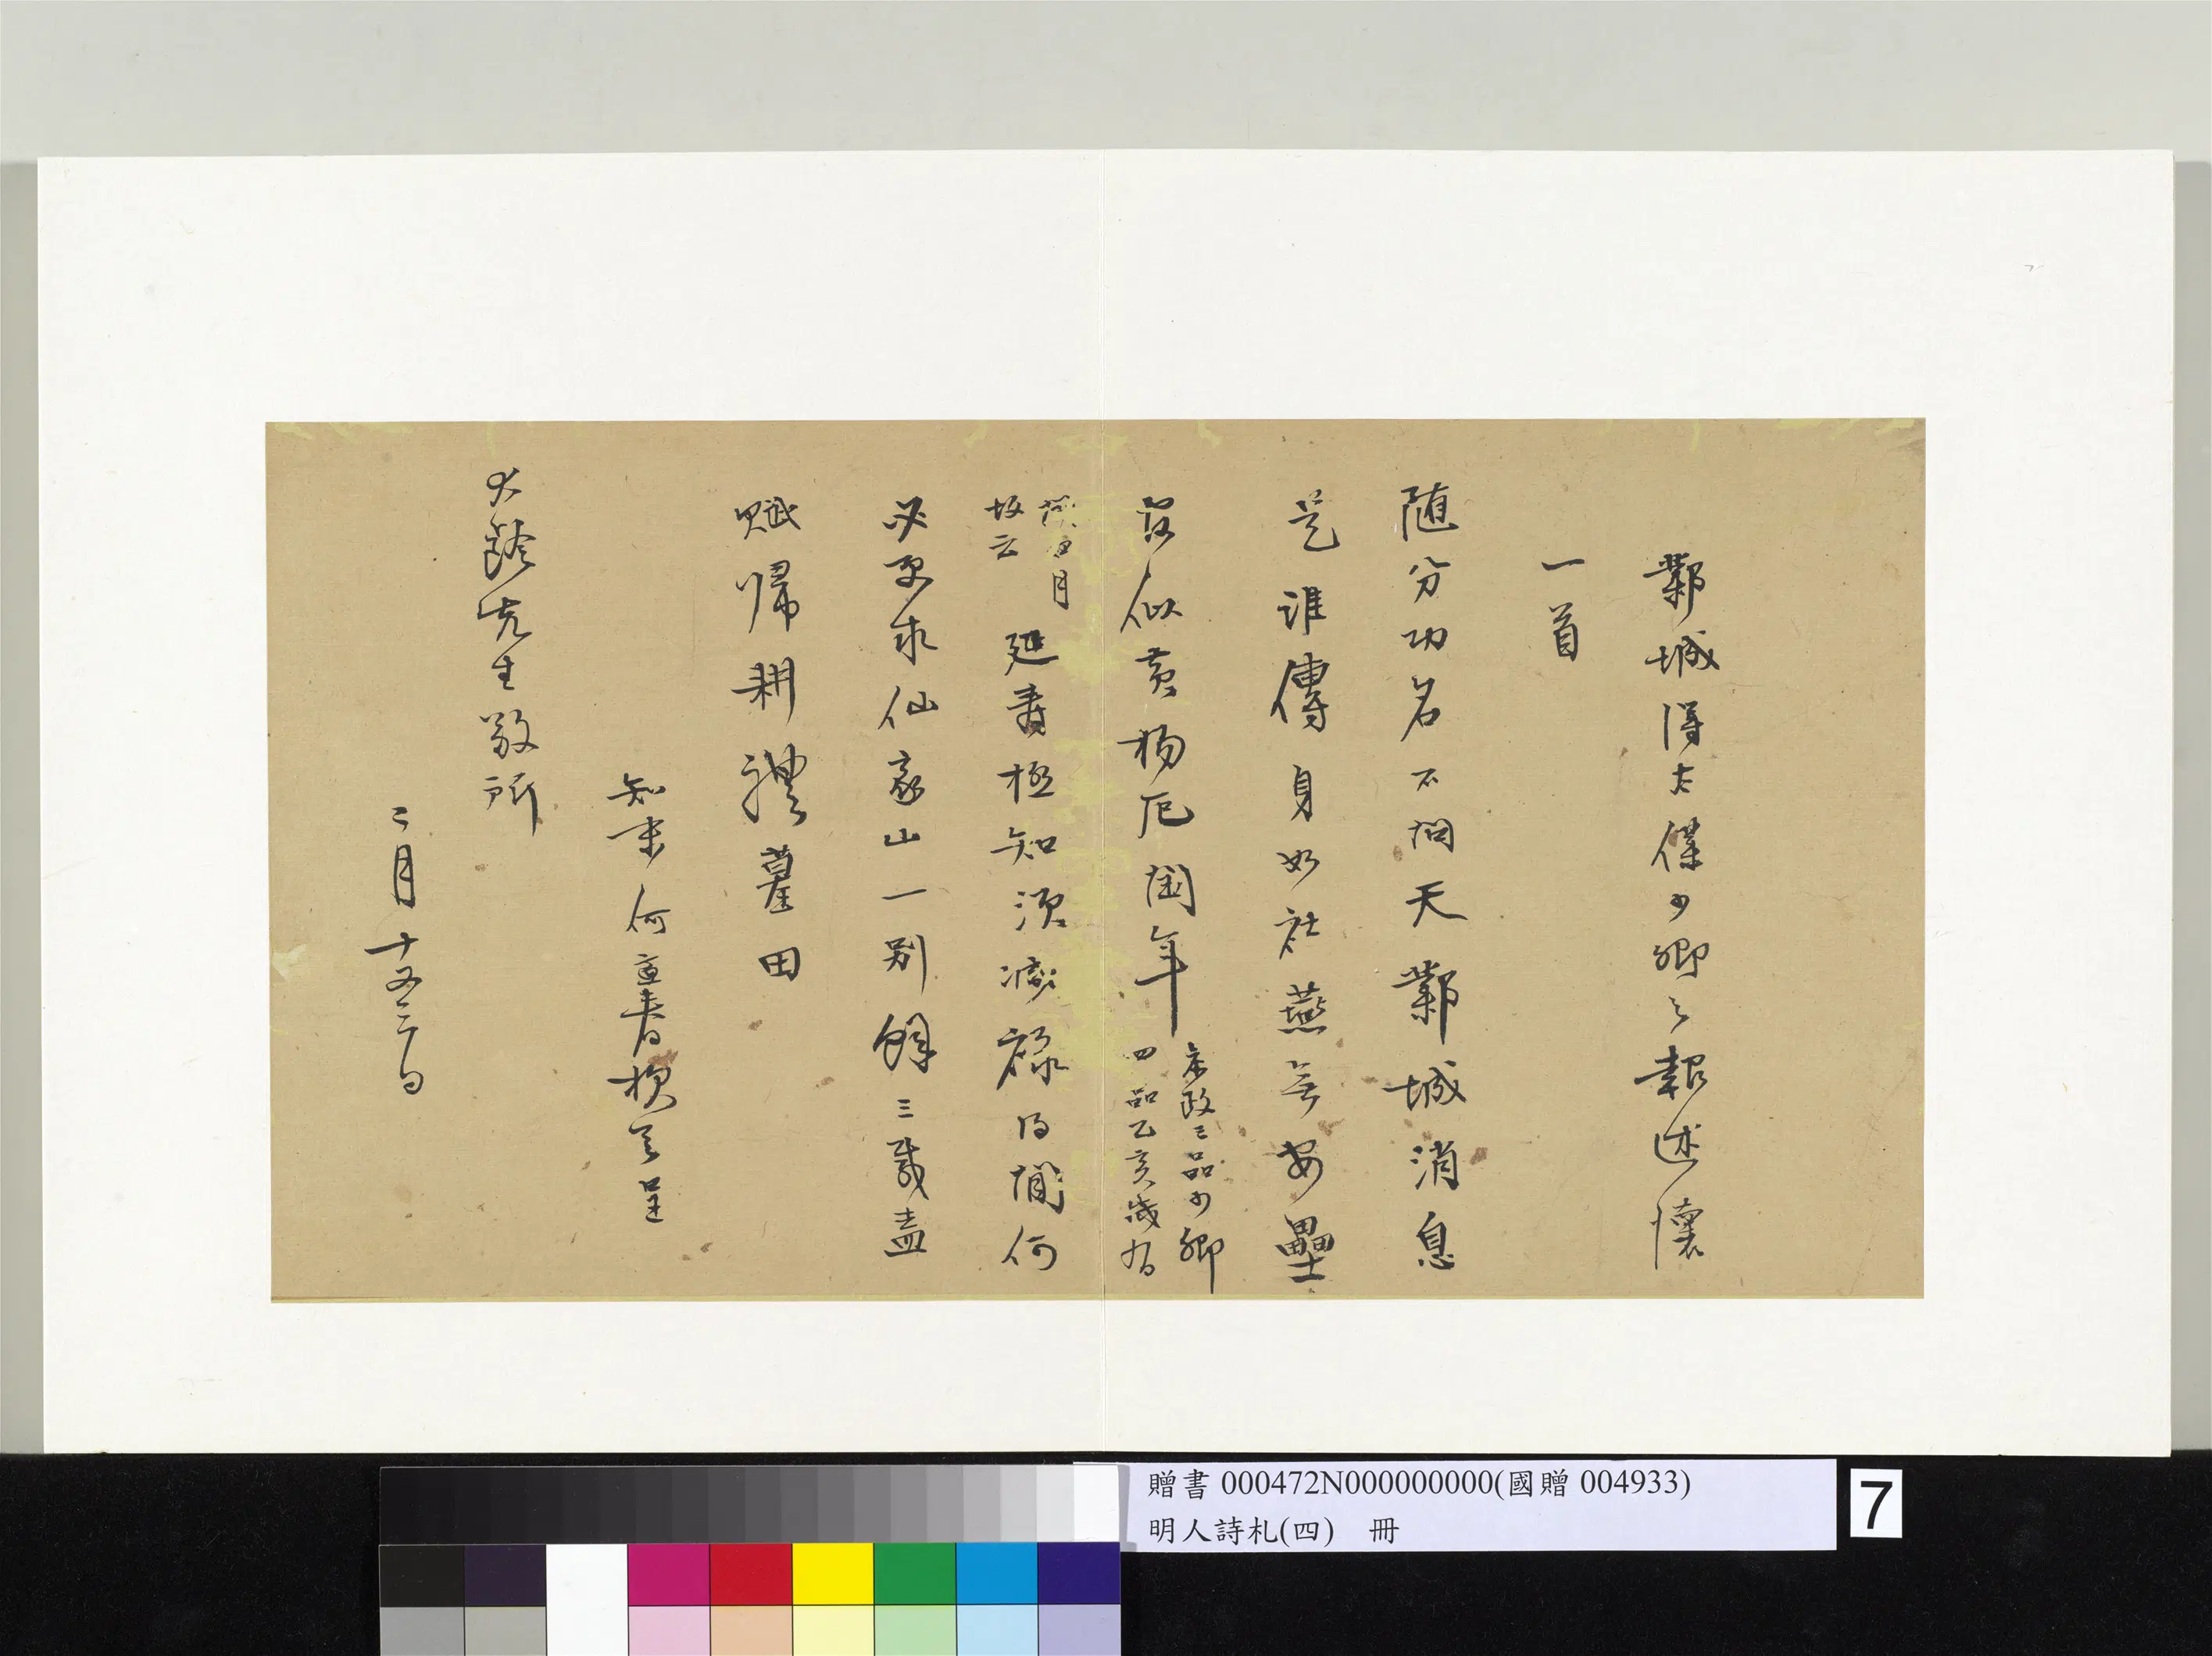 鄴城得太僕少卿之報述懷
一首
隨分功名不問天鄴城消息
是誰傳身如社燕無安壘
官似黃楊厄閏年
參政三品少卿
四品乙亥歲有
閏月
故云
延壽極知須減祿得閒何
必更求仙家山一別餘三載盍
賦歸耕禮墓田
知末何喬
呈
火餘先生敬所
二月十五六日
贈書 000472N000000000(國贈 004933)
明人詩札(四) 冊
7